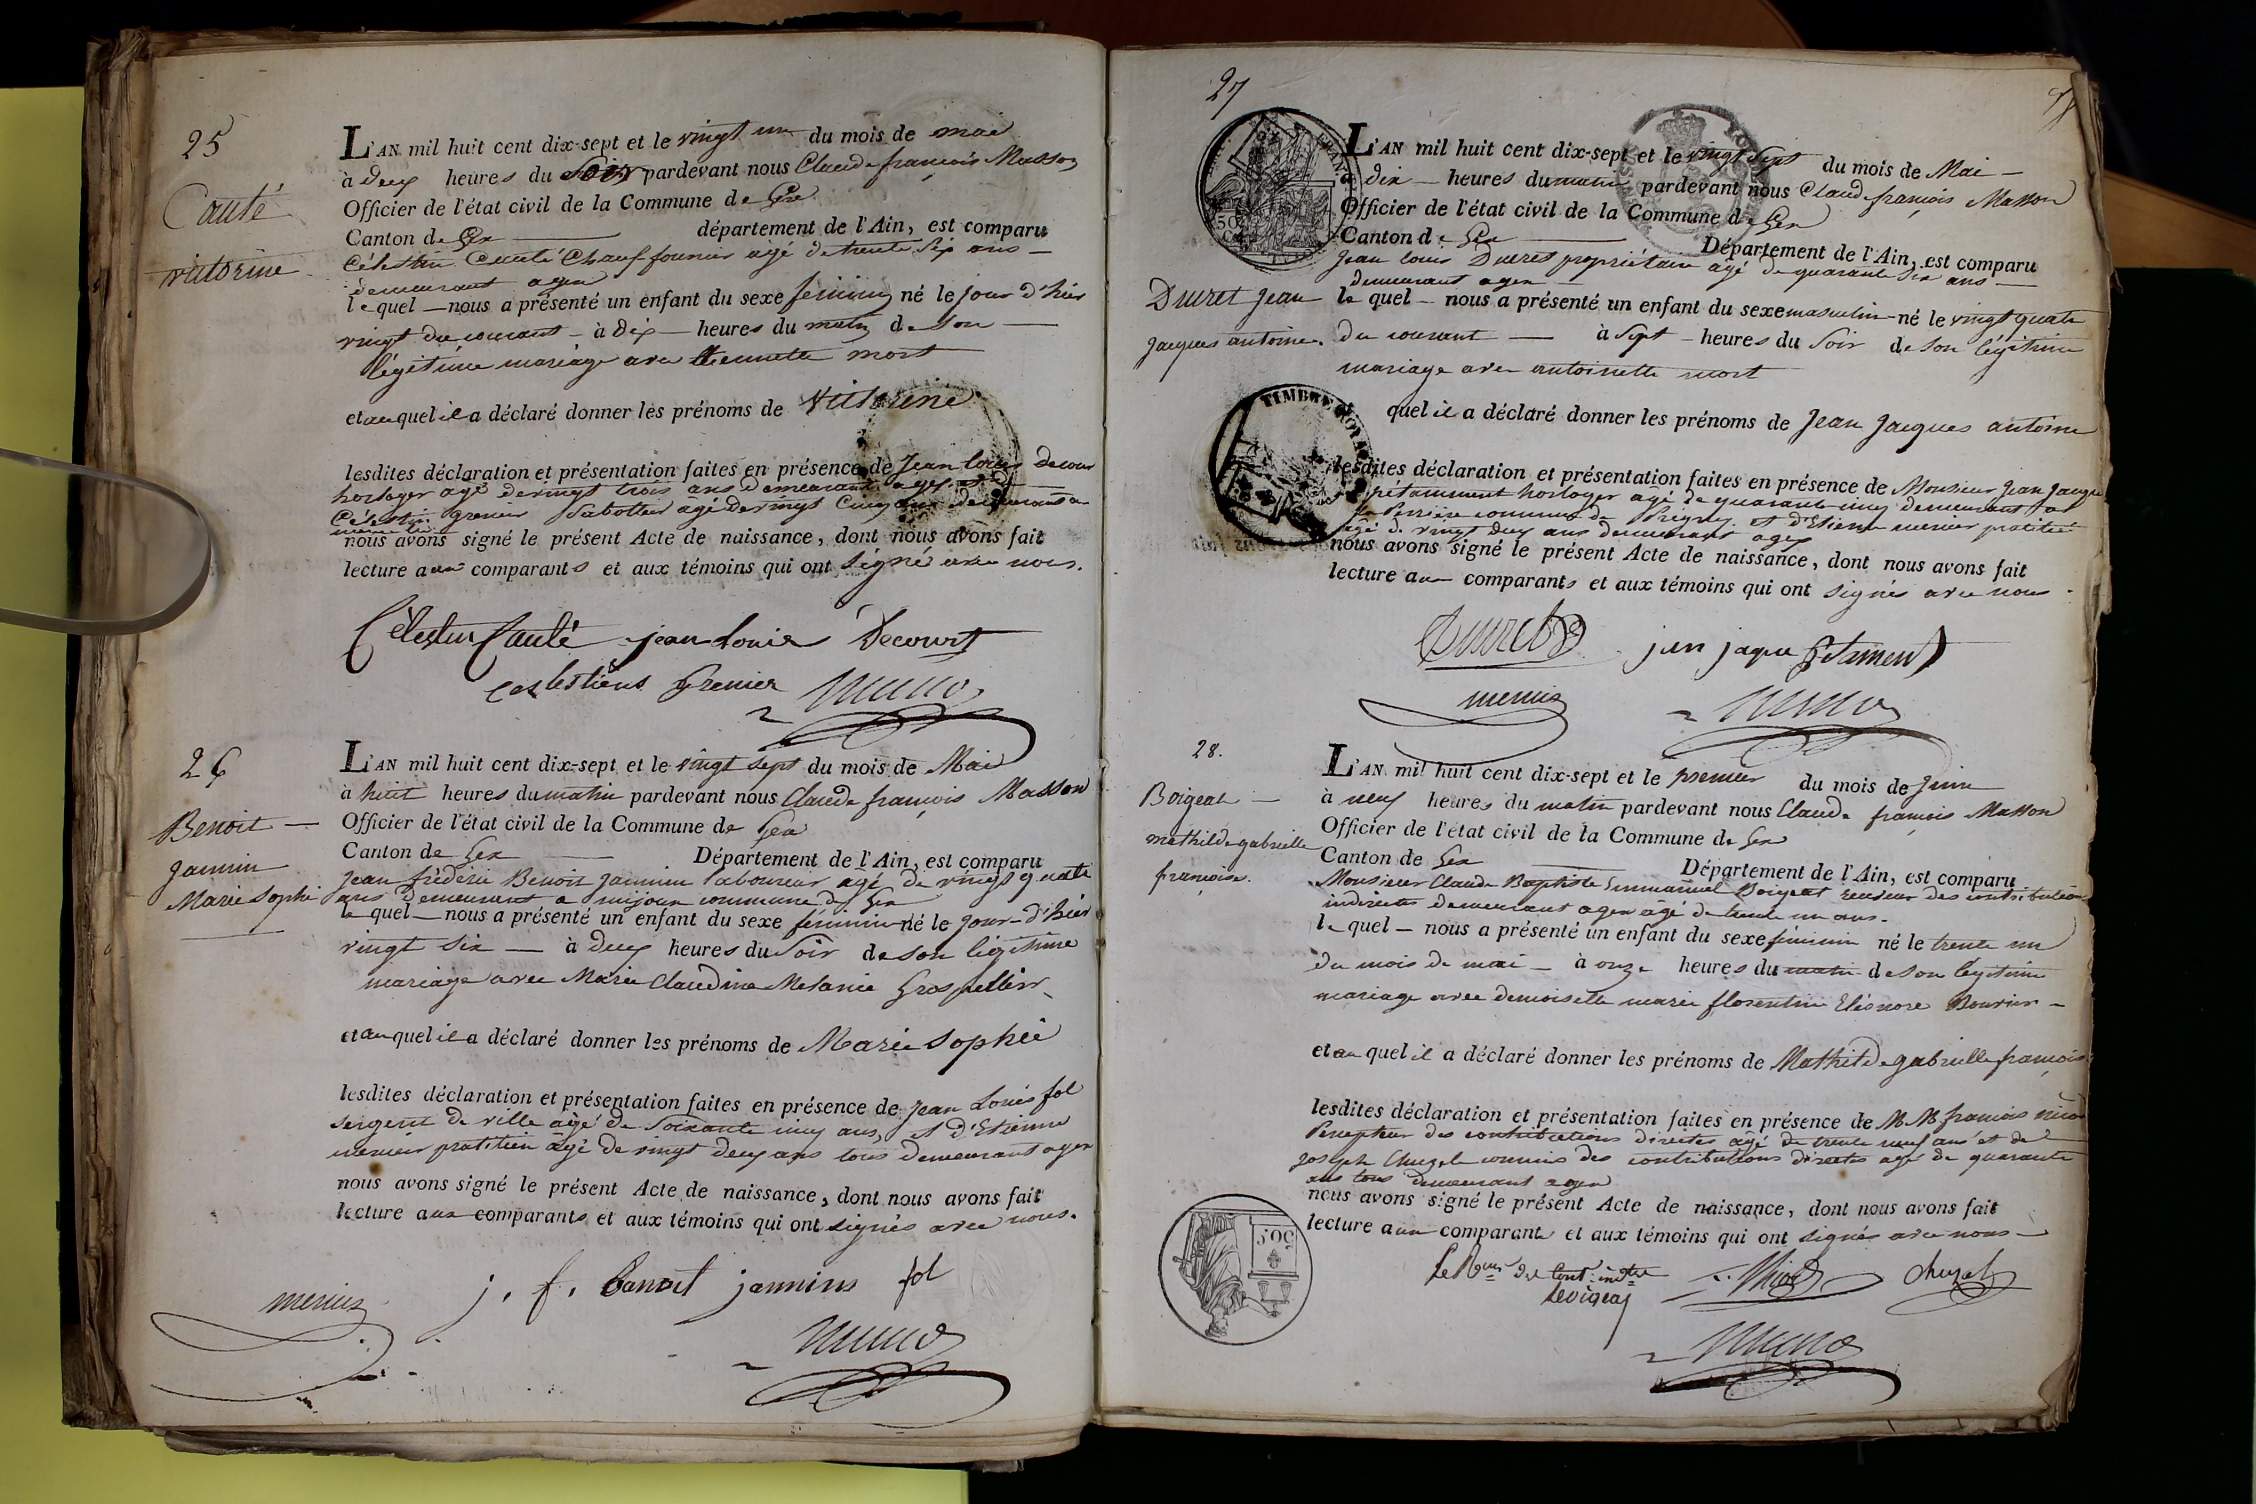 25
Cauté
victorine
L'AN mil huit cent dix-sept et le vingt un du mois de mai
à deux heures du soir pardevant nous Claude françois Masson
Officier de l'état civil de la Commune de Gex
Canton de Gex département de l'Ain, est comparu
Célestin Cauté Chauffournier agé de trente six ans
demeurant a gex
lequel nous a présenté un enfant du sexe féminin né le jour d'hier
vingt du courant à dix heures du matin de son
légitime mariage avec mort
et auquel il a déclaré donner les prénoms de Victorine
lesdites déclaration et présentation faites en présence de Jean Louis decour
horloger agé de vingt trois ans demeurant a gex et de
Célestin grenier Sabottier agé de vingt cinq ans demeurant a
nous avons signé le présent Acte de naissance, dont nous avons fait
lecture aux comparants et aux témoins qui ont signé avec nous.
Célestin Cauté jean Louis Decourt
Celestiens Grenier
26
Benoit
Jannin
Marie Sophie
L'AN mil huit cent dix-sept et le vingt sept du mois de Mai
à huit heures du matin pardevant nous Claude françois Masson
Officier de l'état civil de la Commune de Gex
Canton de Gex Département de l'Ain, est comparu
Jean fréderic Benoit Jannin laboureur agé de vingt quatre
ans demeurant a mijoux commune de Gex
lequel nous a présenté un enfant du sexe féminin né le jour d'hier
vingt six à deux heures du Soir de son légitime
mariage avec Marie Claudine Melanie Grospellier
et auquel il a déclaré donner les prénoms de Marie Sophie
lesdites déclaration et présentation faites en présence de Jean Louis fol
sergent de ville agé de Soixante cinq ans, et d'Etienne
menier pratitien agé de vingt deux ans tous demeurant a gex
nous avons signé le présent Acte de naissance, dont nous avons fait
lecture aux comparants et aux témoins qui ont signés avec nous.
j. f. Benoit jannins fol
menier
27
Ducret Jean
Jacques antoine.
L'AN mil huit cent dix-sept et le vingt Sept du mois de Mai
à dix heures du matin pardevant nous Claude françois Masson
Officier de l'état civil de la Commune de Gex
Canton de Gex Département de l'Ain, est comparu
Jean louis Ducret propriétaire agé de quarante six ans
demeurant a gex
lequel nous a présenté un enfant du sexe masculin né le vingt quatre
du courant à Sept heures du Soir de son légitime
mariage avec antoinette mort
quel il a déclaré donner les prénoms de Jean Jacques antoine
TIMBRE ROYAL
lesdites déclaration et présentation faites en présence de Monsieur Jean Jacques
horloger agé de quarante cinq demeurant a
commune de Prégny et d'Etienne menier pratitien
agé de vingt deux ans demeurant a gex
nous avons signé le présent Acte de naissance, dont nous avons fait
lecture aux comparants et aux témoins qui ont signés avec nous.
Ducret
menier
28.
Boigeat
mathilde gabrielle
françoise.
L'AN mil huit cent dix-sept et le premier du mois de juin
à neuf heures du matin pardevant nous Claude françois Masson
Officier de l'état civil de la Commune de Gex
Canton de Gex Département de l'Ain, est comparu
Monsieur Claude Baptiste Emmanuel Boigeat receveur des contributions
indirectes demeurant a gex agé de trente un ans.
lequel nous a présenté un enfant du sexe féminin né le trente un
du mois de mai à onze heures du matin de son légitime
mariage avec demoiselle marie florentine Eléonore Bouvier
et au quel il a déclaré donner les prénoms de Mathilde gabrielle françoise
lesdites déclaration et présentation faites en présence de M.M. francois nicod
Percepteur des contributions directes agé de trente neuf ans et de
joseph Chuzel commis des contributions directes agé de quarante
ans tous demeurant a gex
nous avons signé le présent Acte de naissance, dont nous avons fait
lecture aux comparants et aux témoins qui ont signés avec nous
50.C
Nicod Chuzel